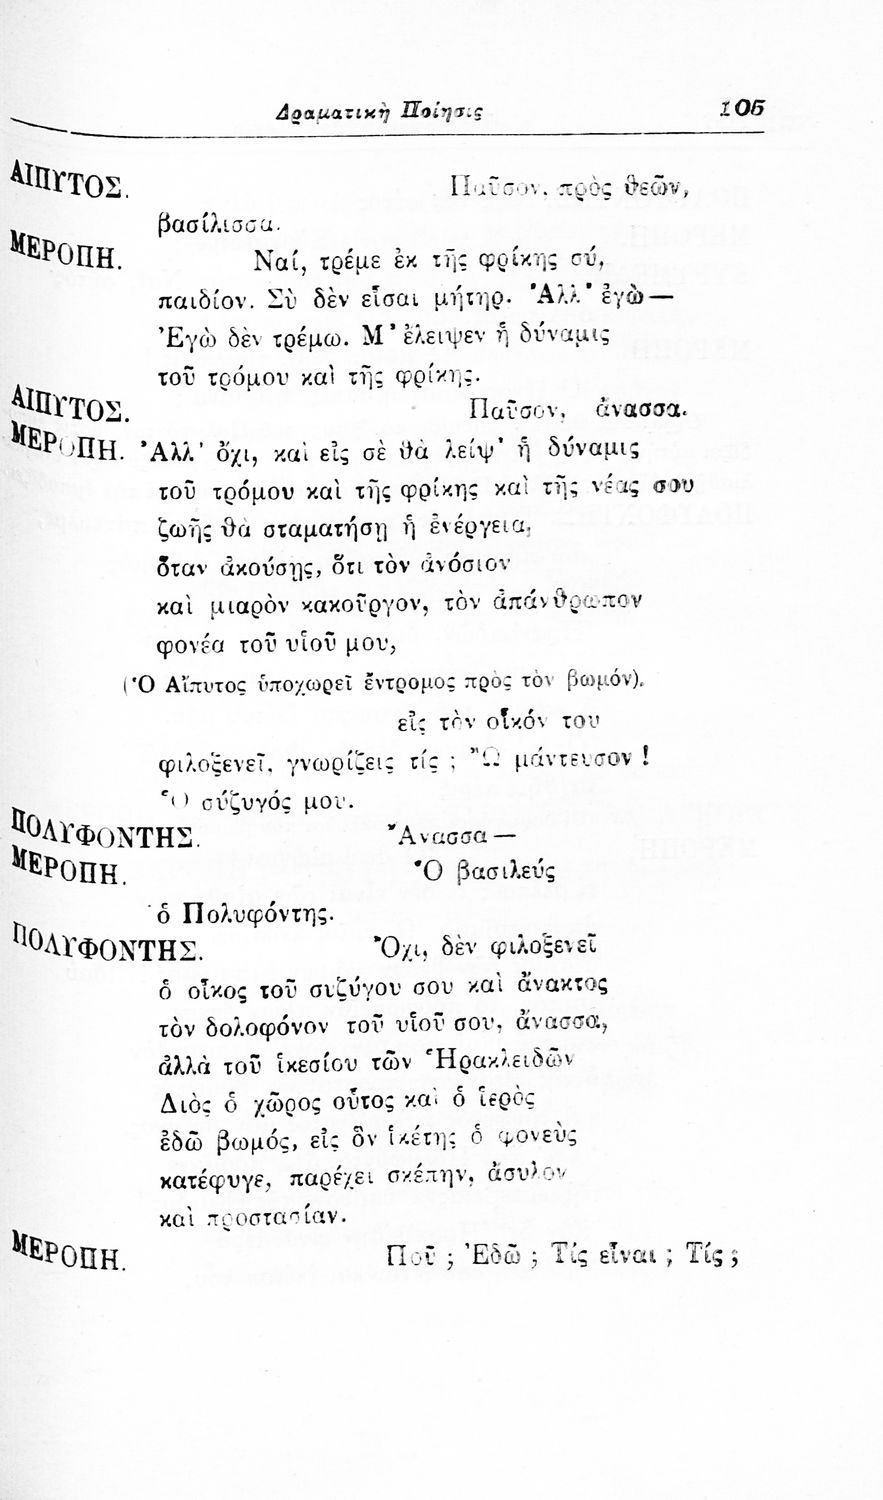 Δραματικὴ Ποίησις 105
ΑΙΠΥΤΟΣ. Παῦσον, πρὸς θεῶν,
βασίλισσα.
ΜΕΡΟΠΗ. Ναί, τρέμε ἐκ τῆς φρίκης σύ,
παιδίον. Σὺ δὲν εἶσαι μήτηρ. Ἀλλ' ἐγὼ —
Ἐγὼ δὲν τρέμω. Μ' ἔλειψεν ἡ δύναμις
τοῦ τρόμου καὶ τῆς φρίκης.
ΑΙΠΥΤΟΣ. Παῦσον, ἄνασσα.
ΜΕΡΟΠΗ. Ἀλλ' ὄχι, καὶ εἰς σὲ θὰ λείψ' ἡ δύναμις
τοῦ τρόμου καὶ τῆς φρίκης καὶ τῆς νέας σου
ζωῆς θὰ σταματήσῃ ἡ ἐνέργεια,
ὅταν ἀκούσῃς, ὅτι τὸν ἀνόσιον
καὶ μιαρὸν κακοῦργον, τὸν ἀπάνθρωπον
φονέα τοῦ υἱοῦ μου,
(Ὁ Αἴπυτος ὑποχωρεῖ ἔντρομος πρὸς τὸν βωμόν).
εἰς τὸν οἶκόν του
φιλοξενεῖ, γνωρίζεις τίς ; Ὢ μάντευσον !
Ὁ σύζυγός μου.
ΠΟΛΥΦΟΝΤΗΣ. Ἄνασσα —
ΜΕΡΟΠΗ. Ὁ βασιλεύς
ὁ Πολυφόντης.
ΠΟΛΥΦΟΝΤΗΣ. Ὄχι, δὲν φιλοξενεῖ
ὁ οἶκος τοῦ συζύγου σου καὶ ἄνακτος
τὸν δολοφόνον τοῦ υἱοῦ σου, ἄνασσα,
ἀλλὰ τοῦ ἱκεσίου τῶν Ἡρακλειδῶν
Διὸς ὁ χῶρος οὗτος καὶ ὁ ἱερὸς
ἐδῶ βωμός, εἰς ὃν ἱκέτης ὁ φονεὺς
κατέφυγε, παρέχει σκέπην, ἄσυλον
καὶ προστασίαν.
ΜΕΡΟΠΗ. Ποῦ ; Ἐδῶ ; Τίς εἶναι ; Τίς ;